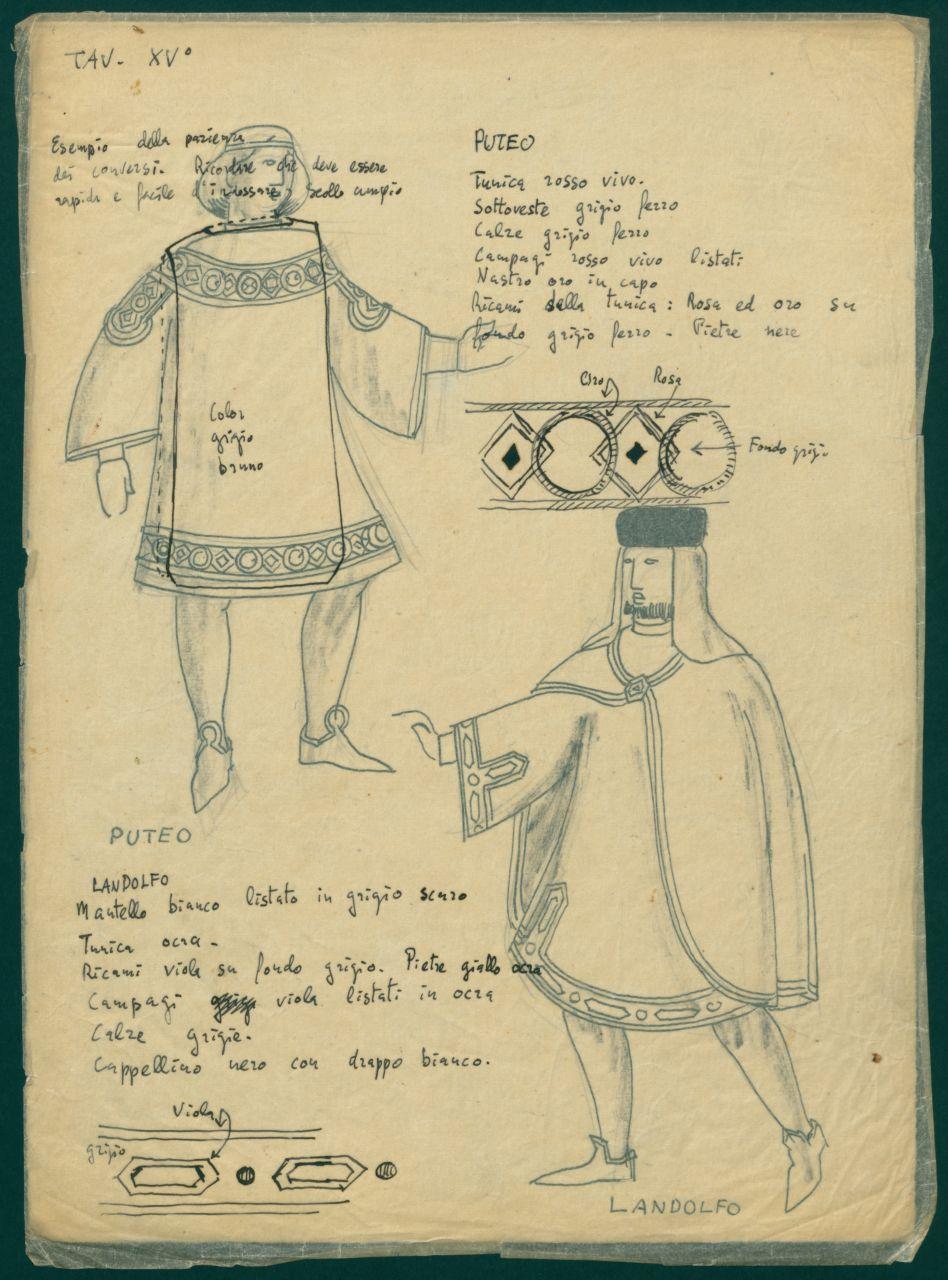 TAV. XV°
Esempio della pazienza
dei conversi. Ricordare che deve essere
rapida e facile d'indossare; scollo ampio
PUTEO
Tunica rosso vivo.
Sottoveste grigio ferro
Calze grigio ferro
Campagi rosso vivo listati
Nastro oro in capo
Ricami della tunica: Rosa ed oro su
fondo grigio ferro - Pietre nere
Oro Rosa
Fondo grigio
Color
grigio
bruno
PUTEO
LANDOLFO
Mantello bianco listato in grigio scuro
Tunica ocra -
Ricami viola su fondo grigio. Pietre giallo ocra
Campagi viola listati in ocra
Calze grigie.
Cappellino nero con drappo bianco.
Viola
grigio
LANDOLFO